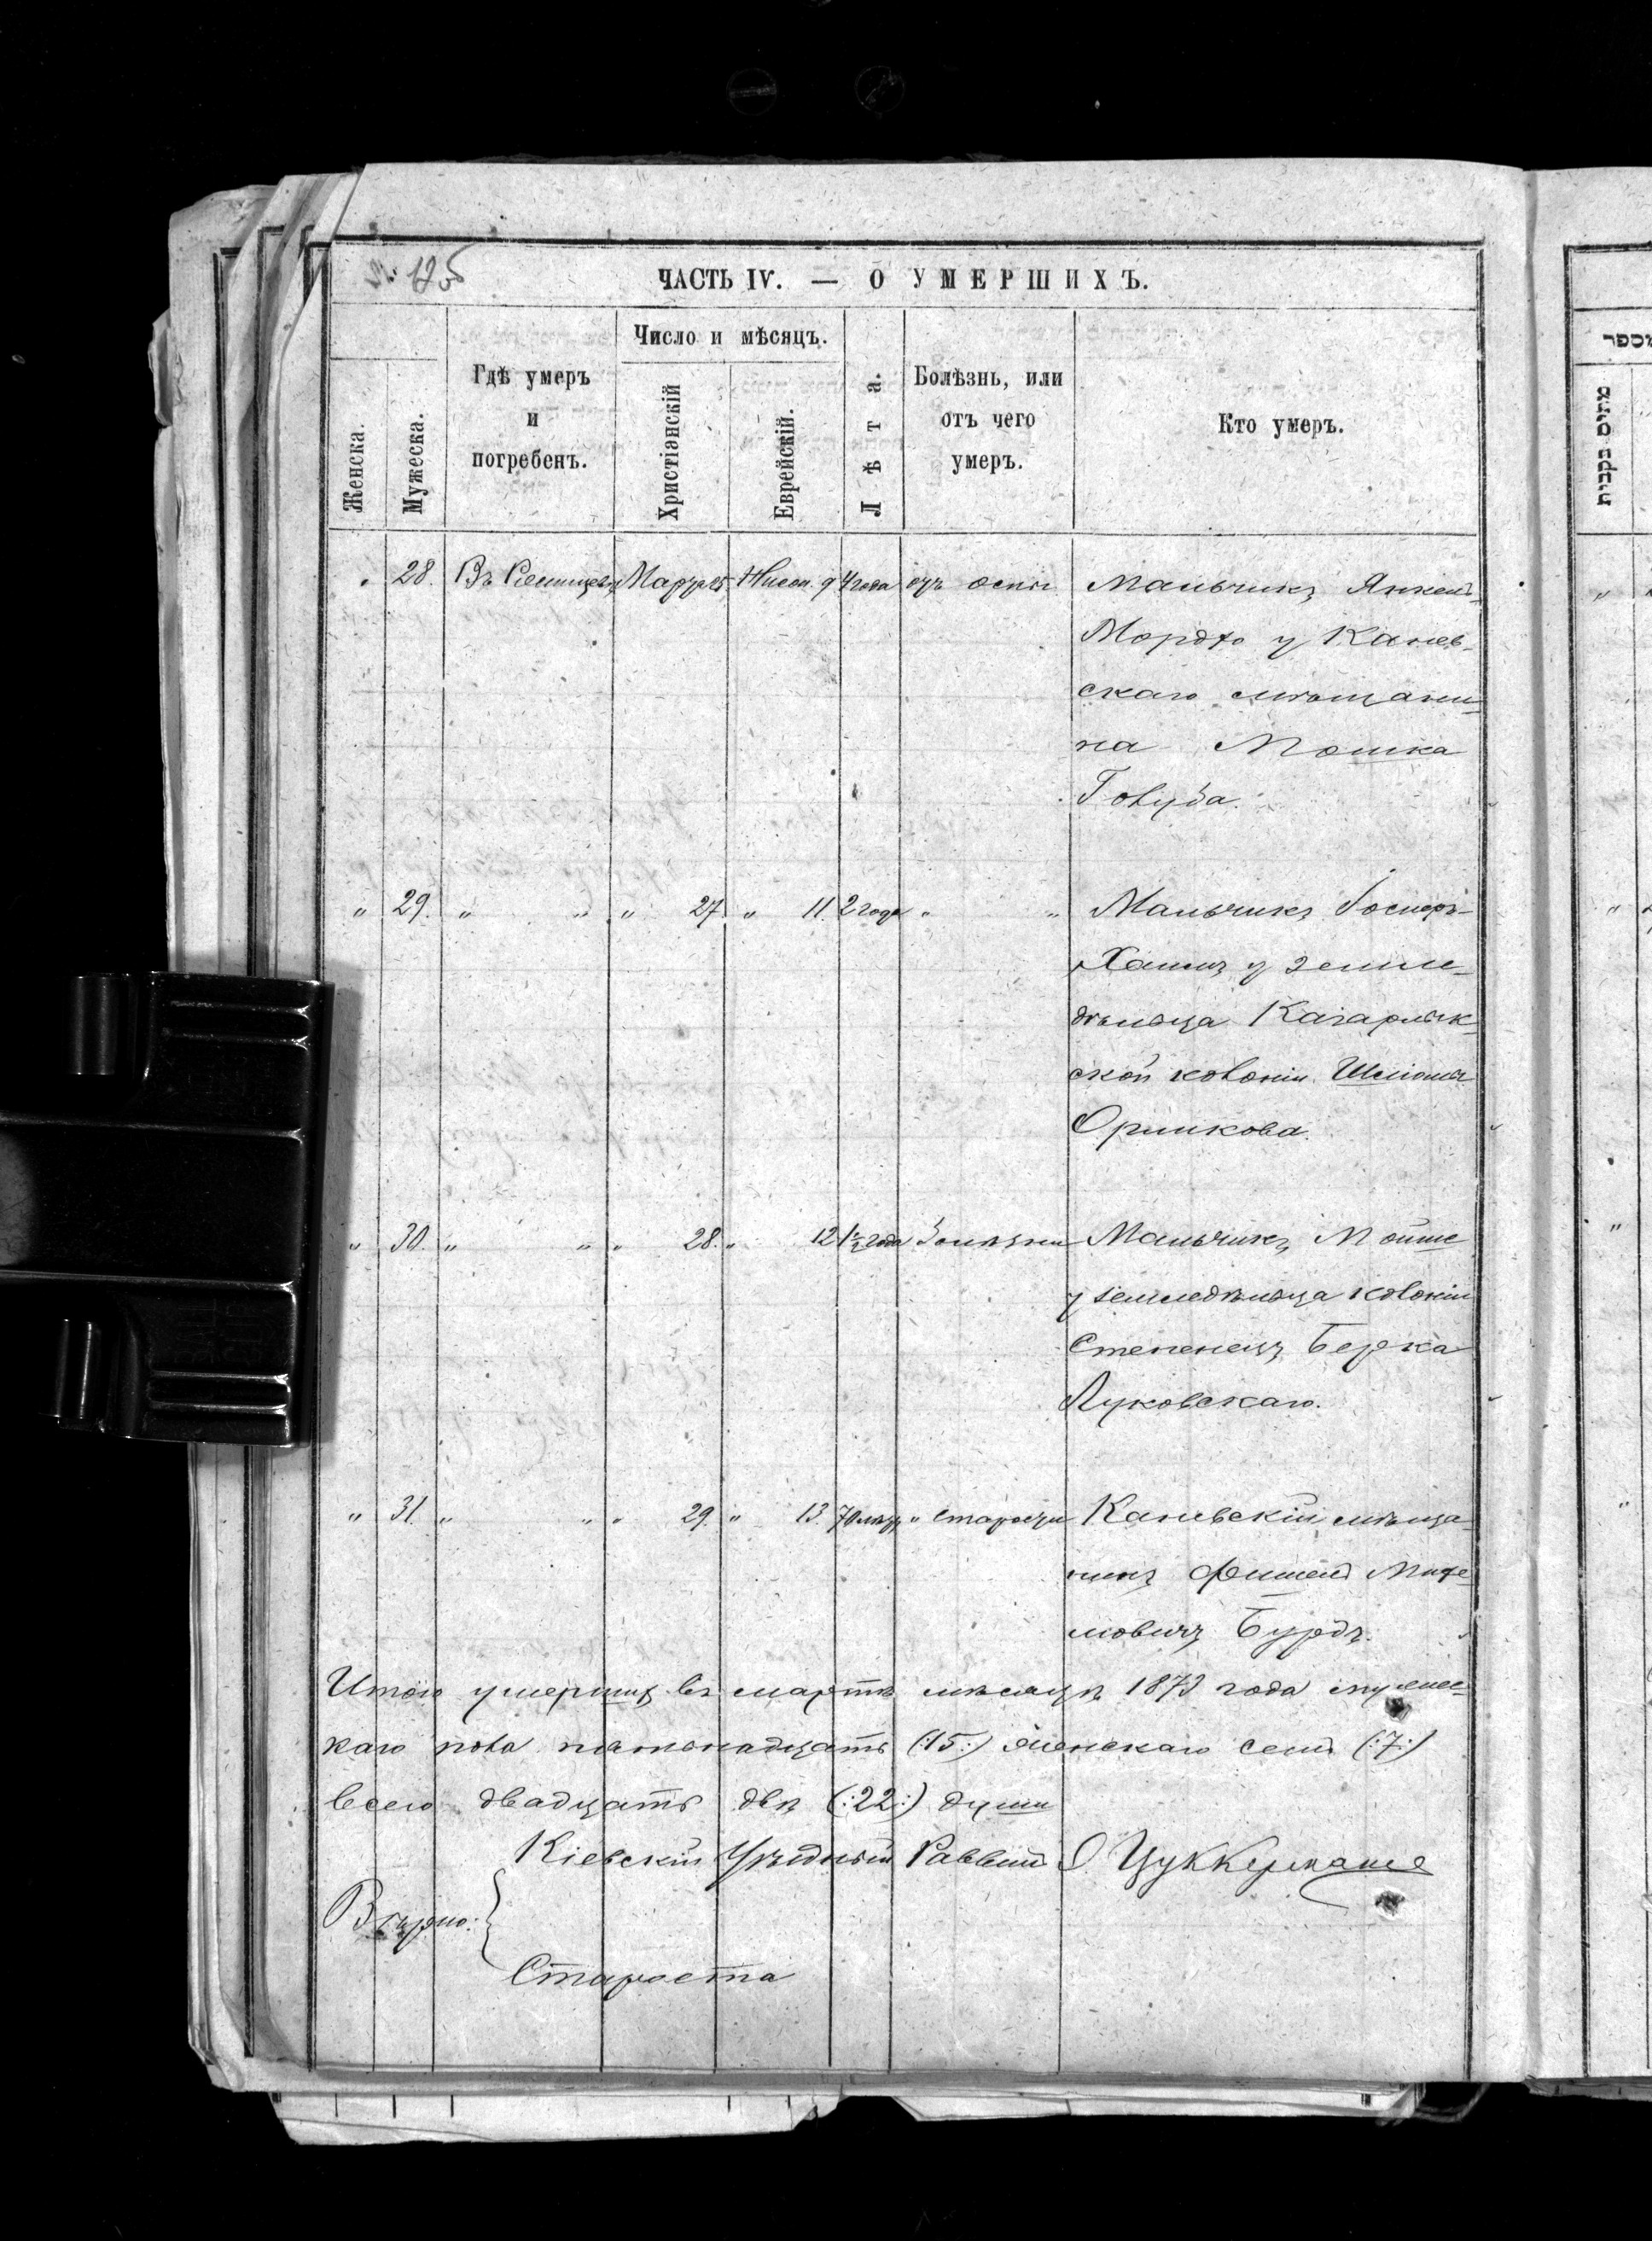 125
ЧАСТЬ IV. — О УМЕРШИХЪ.
Женска.
Мужеска.
Гдѣ умеръ
и
погребенъ.
Число и мѣсяцъ.
Христіанскій
Еврейскій.
Лѣта.
Болѣзнь, или
отъ чего
умеръ.
Кто умеръ.
" 28. Въ Ржищевѣ Марта 25. Нисон. 9 4 года отъ оспы Мальчикъ Янкель-
Мордхо у Канев-
скаго мѣщани-
на Мошка
Голуба.
" 29. " " " 27 " 11. 2 года " " Мальчикъ Іосифъ-
Хаимъ у земле-
дѣльца Кагарлык-
ской колоніи Шліомы
Орликова.
" 30. " " " 28. " 12 1½ года Мальчикъ Мойше
у земледѣльца колоніи
Степенецъ Берка
Луковскаго.
" 31. " " " 29. " 13. 70 лѣтъ " старости Каневскій мѣща-
нинъ Фишель Михе-
левичъ Бурдъ.
Итого умершихъ въ мартѣ мѣсяцѣ 1873 года мужес-
каго пола пятьнадцать (:15:) женскаго семь (:7:)
всего двадцать двѣ (:22:) души
Кіевскій Уѣздный Раввинъ Цуккерманъ
Вѣрно:
Староста
מספר